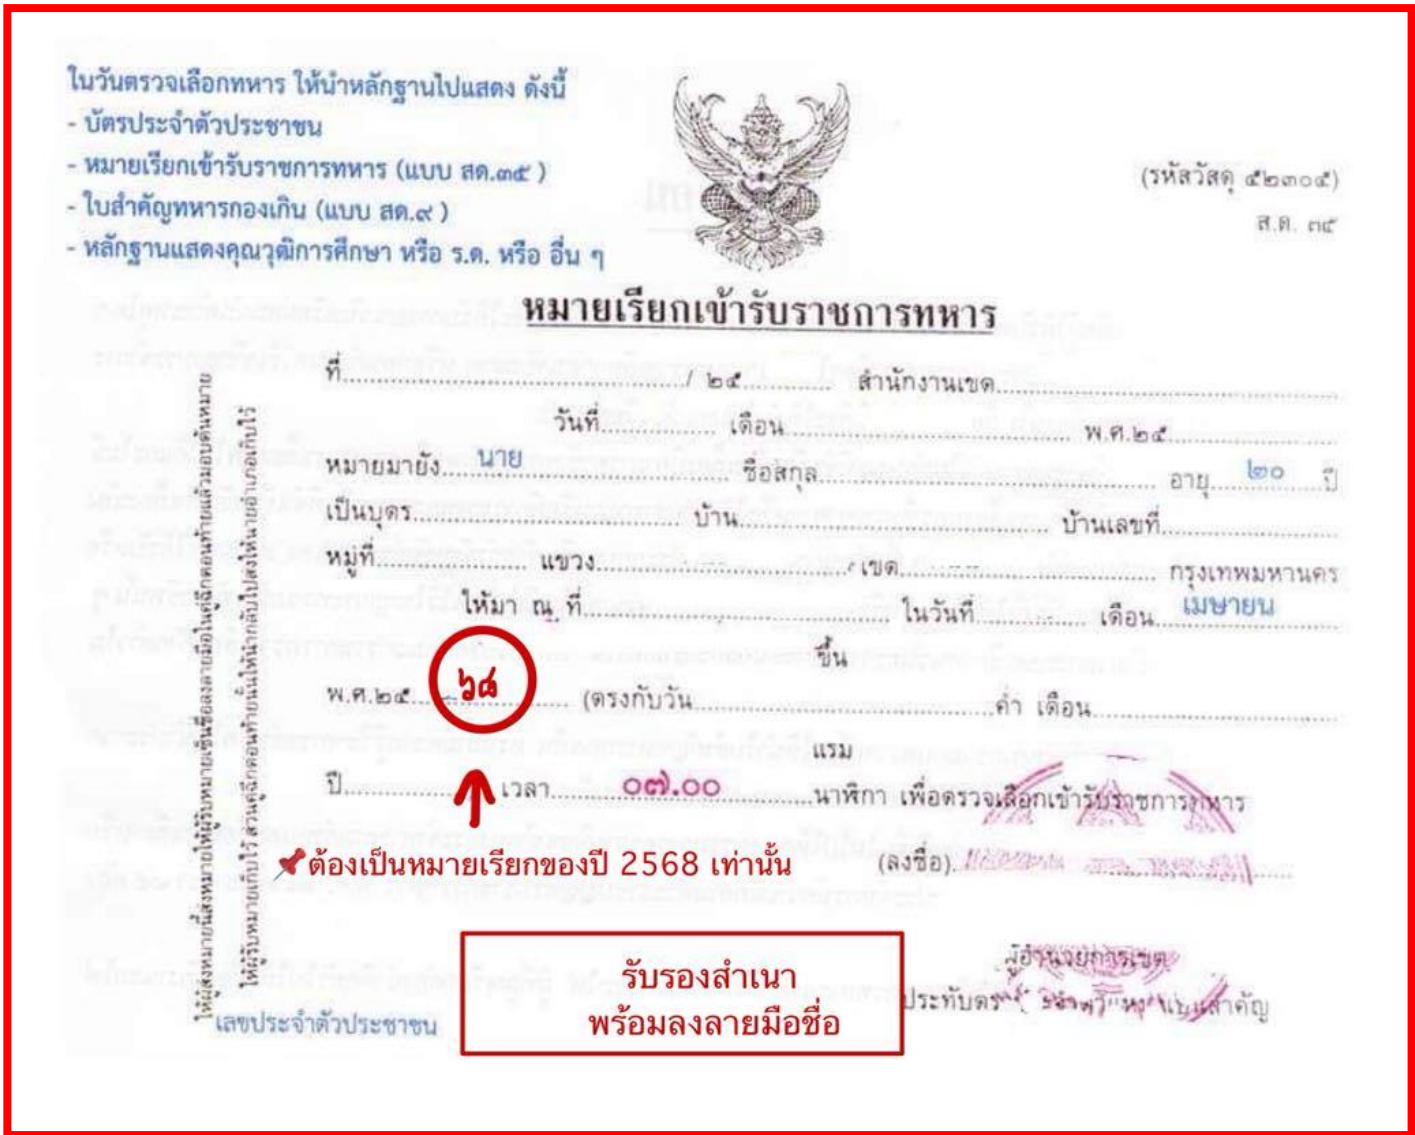 ในวันตรวจเลือกทหาร ให้นำหลักฐานไปแสดง ดังนี้
- บัตรประจำตัวประชาชน
- หมายเรียกเข้ารับราชการทหาร (แบบ สด.๓๕ )
- ใบสำคัญทหารกองเกิน (แบบ สด.๙ )
- หลักฐานแสดงคุณวุฒิการศึกษา หรือ ร.ด. หรือ อื่น ๆ
(รหัสวัสดุ ๕๒๓๐๕)
ส.ด. ๓๕
หมายเรียกเข้ารับราชการทหาร
ที่............/ ๒๕............สำนักงานเขต............
วันที่............เดือน............พ.ศ.๒๕............
หมายมายัง....นาย............ชื่อสกุล............อายุ....๒๐....ปี
เป็นบุตร............บ้าน............บ้านเลขที่............
หมู่ที่............แขวง............เขต............กรุงเทพมหานคร
ให้มา ณ ที่............ในวันที่............เดือน เมษายน
ขึ้น
พ.ศ.๒๕....๖๘............(ตรงกับวัน............ค่ำ เดือน............
แรม
ปี............เวลา............๐๗.๐๐............นาฬิกา เพื่อตรวจเลือกเข้ารับราชการทหาร
📌ต้องเป็นหมายเรียกของปี 2568 เท่านั้น
(ลงชื่อ)............
ผู้อำนวยการเขต
รับรองสำเนา
พร้อมลงลายมือชื่อ
เลขประจำตัวประชาชน
ให้ผู้ส่งหมายนี้ส่งหมายให้ผู้รับหมายเซ็นชื่อลงลายมือในที่ฉีกตอนท้ายแล้วมอบต้นหมาย
ให้ผู้รับหมายเก็บไว้ ส่วนคู่ฉีกตอนท้ายนั้นให้นำกลับไปส่งให้นายอำเภอเก็บไว้